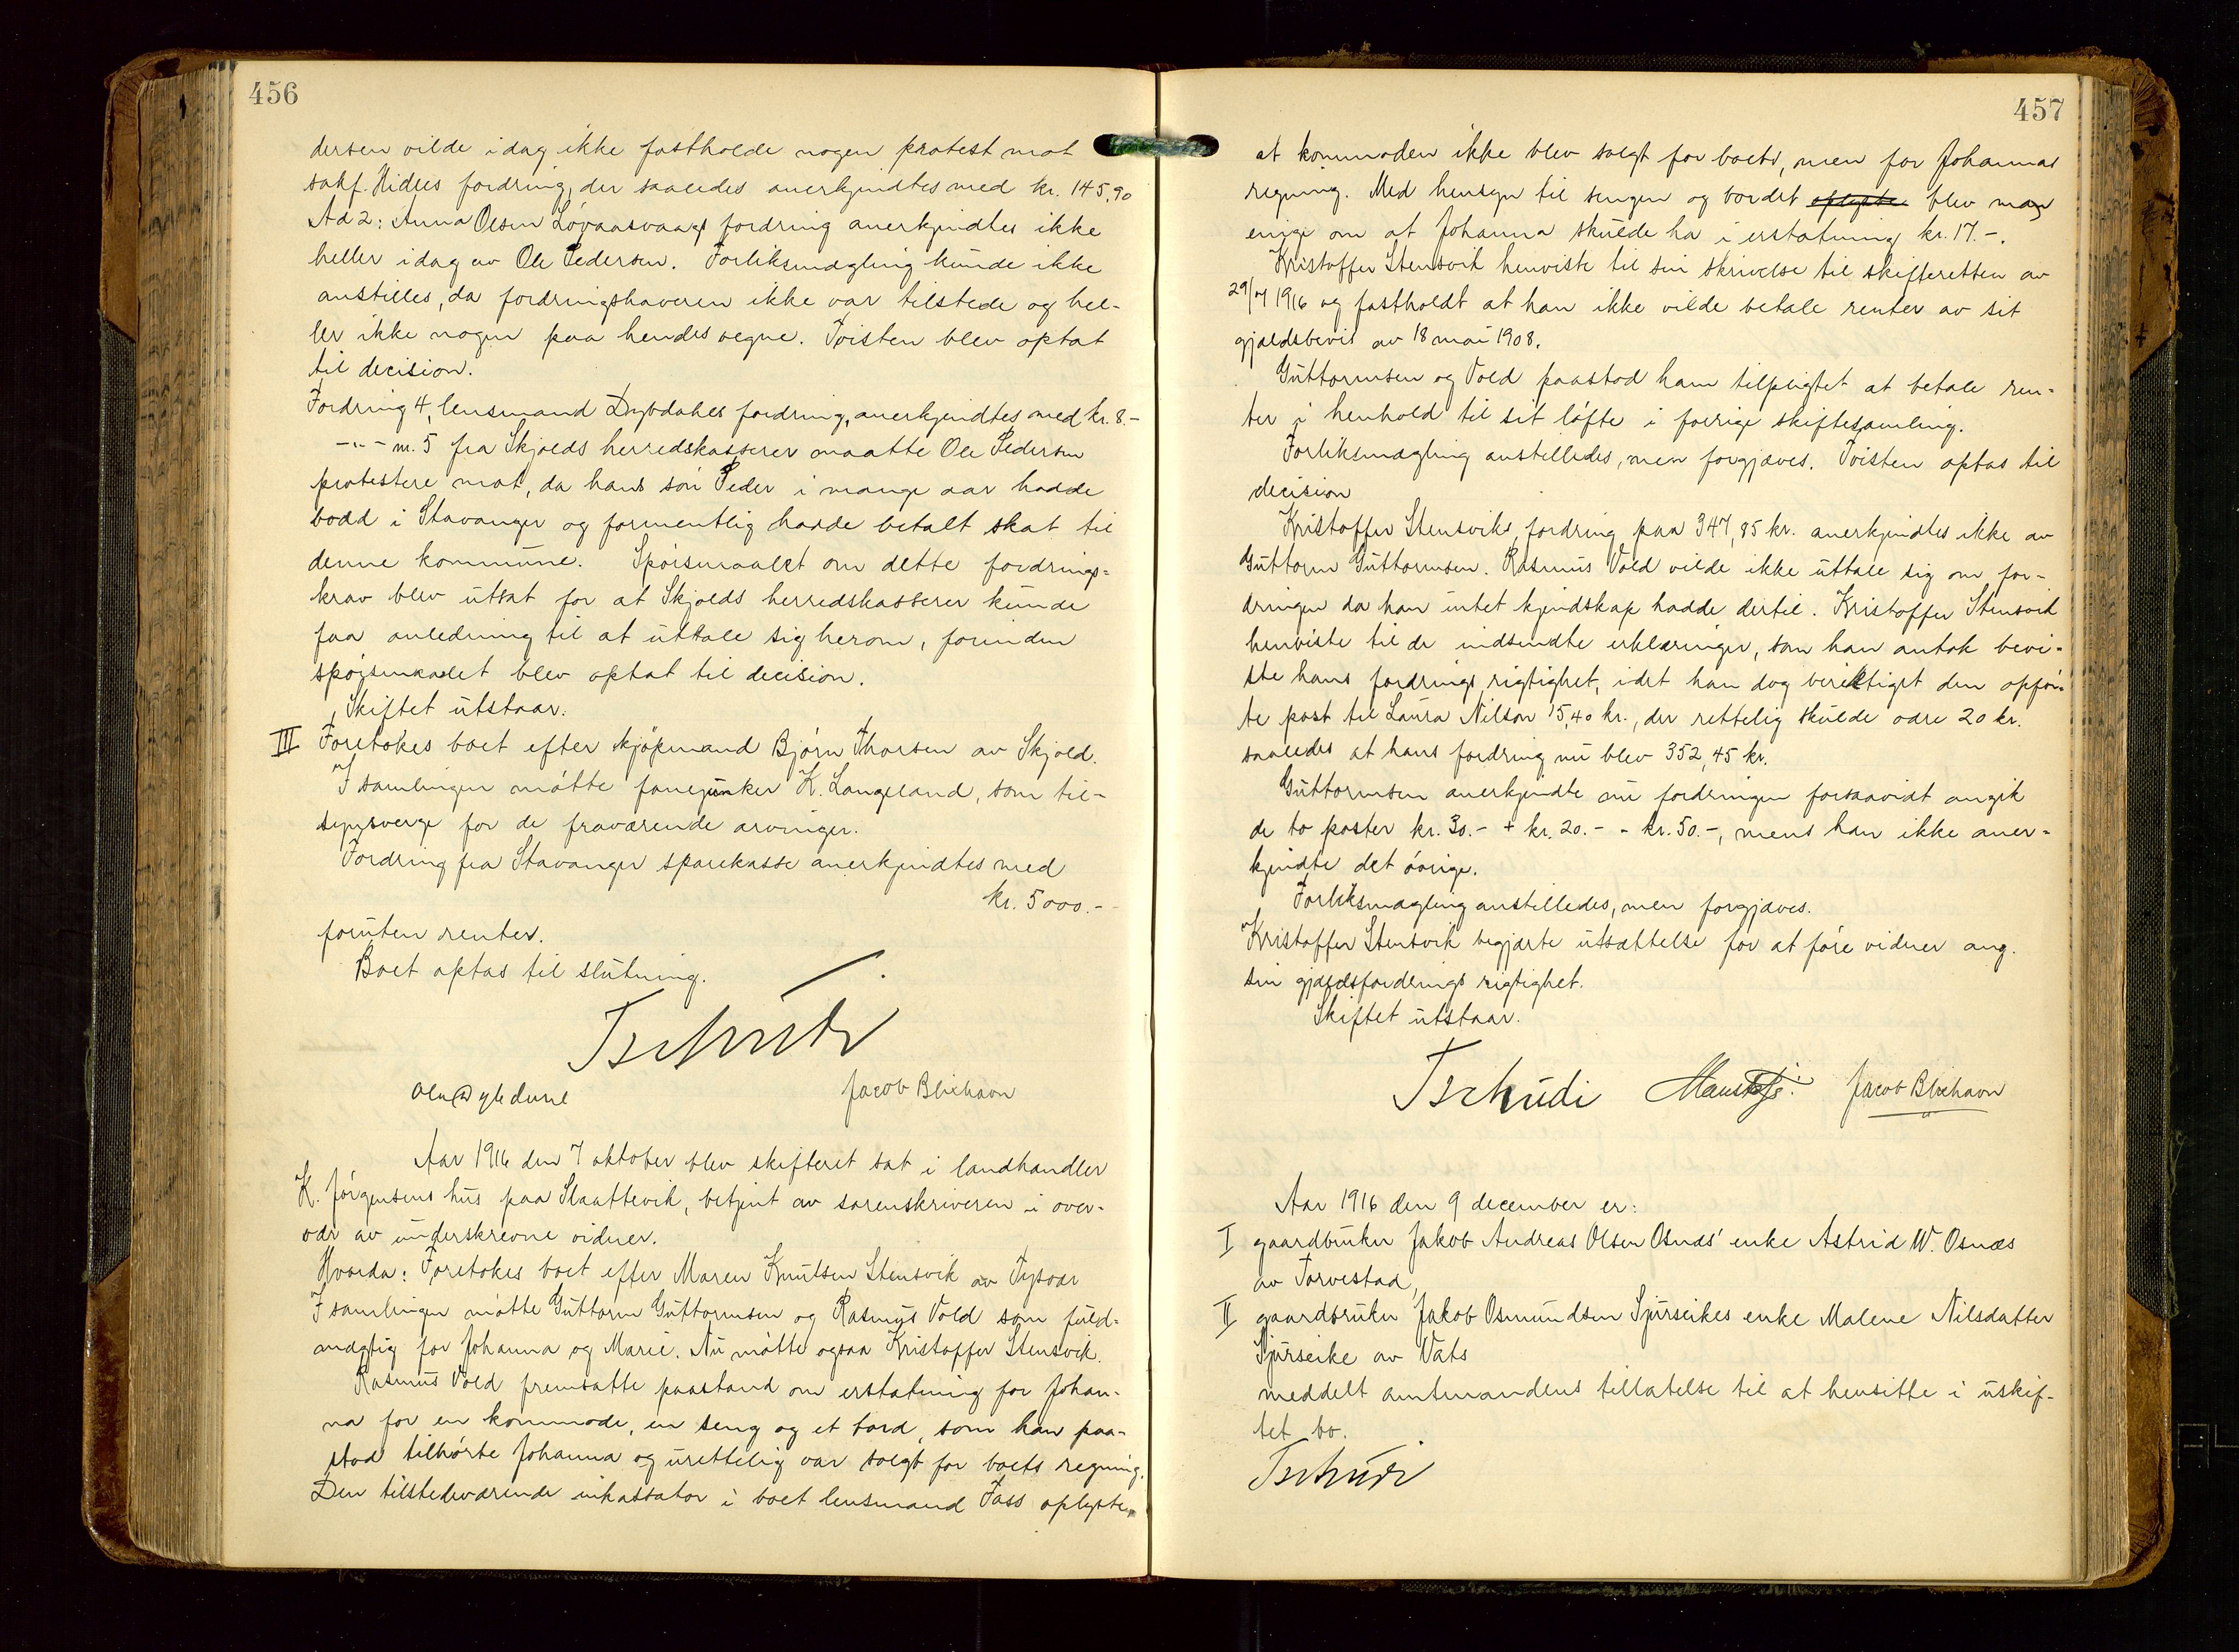 456
dersen vilde idag ikke fastholde nogen protest mot
sakf. Hidles fordring, der saaledes anerkjendtes med kr. 145,90
Ad 2: Anna Olsen Løvaasvaags fordring anerkjendtes ikke
heller idag av Ole Pedersen. Forliksmægling kunde ikke
anstilles, da fordringshaveren ikke var tilstede og hel-
ler ikke nogen paa hendes vegne. Tvisten blev optat
til decision.
Fordring 4, lensmand Dybdahls fordring, anerkjendtes med kr. 8.-
-"- nr. 5 fra Skjolds herredskasserer maatte Ole Pedersen
protestere mot, da hans søn Peder i mange aar hadde
bodd i Stavanger og formentlig hadde betalt skat til
denne kommune. Spørsmaalet om dette fordrings=
krav blev utsat for at Skjolds herredskasserer kunde
faa anledning til at uttale sig herom, forinden
spørsmaalet blev optat til decision.
Skiftet utstaar.
III Foretokes boet efter kjøpmand Bjørn Thorsen av Skjold.
I samlingen møtte fanejunker K. Langeland, som til-
synsverge for de fraværende arvinger.
Fordring fra Stavanger sparekasse anerkjendtes med
kr. 5000.-
foruten renter.
Boet optas til slutning.
Tschudi
Jacob Blixhavn
Aar 1916 den 7 oktober blev skifteret sat i landhandler
K. Jørgensens hus paa Slaattevik, betjent av sorenskriveren i over-
vær av underskrevne vidner.
Hvorda: Foretokes boet efter Maren Knutsen Stensvik av Tysvær
I samlingen møtte Guttorm Guttormsen og Rasmus Vold som fuld-
mægtig for Johanna og Marie. Nu møtte ogsaa Kristoffer Stensvik.
Rasmus Vold fremsatte paastand om erstatning for Johan-
na for en kommode, en seng og et bord, som han paa-
stod tilhørte Johanna og urettelig var solgt for boets regning.
Den tilstedeværende inkassator i boet lensmand Fass oplyste
457
at kommoden ikke blev solgt for boets, men for Johannas
regning. Med hensyn til sengen og bordet oplyste blev man
enige om at Johanna skulde ha i erstatning kr. 17.-.
Kristoffer Stensvik henviste til sin skrivelse til skifteretten av
29/7 1916 og fastholdt at han ikke vilde betale renter av sit
gjældsbevis av 18 mai 1908.
Guttormsen og Vold paastod ham tilpligtet at betale ren-
ter i henhold til sit løfte i forrige skiftesamling.
Forliksmægling anstilledes, men forgjæves. Tvisten optas til
decision
Kristoffer Stensviks fordring paa 347,85 kr. anerkjendtes ikke av
Guttorm Guttormsen. Rasmus Vold vilde ikke uttale sig om for-
dringen da han intet kjendskap hadde dertil. Kristoffer Stensvik
henviste til de indsendte erklæringer, som han antok bevi-
ste hans fordrings rigtighet, idet han dog beriktiget den opfør-
te post til Laura Nilson 15,40 kr., der rettelig skulde være 20 kr.
saaledes at hans fordring nu blev 352,45 kr.
Guttormsen anerkjendte nu fordringen forsaavidt angik
de to poster kr. 30.- + kr. 20.- = kr. 50.-, mens han ikke aner-
kjendte det øvrige.
Forliksmægling anstilledes, men forgjæves.
Kristoffer Stensvik begjærte utsættelse for at føre vidner ang.
sin gjældsfordrings rigtighet.
Skiftet utstaar.
Tschudi Jacob Blixhavn
Aar 1916 den 9 december er:
I gaardbruker Jakob Andreas Olsen Osnæs' enke Astrid W. Osnæs
av Torvestad,
II gaardbruker Jakob Osmundsen Sjurseikes enke Malene Nilsdatter
Sjurseike av Vats
meddelt amtmandens tillatelse til at hensitte i uskif-
tet bo.
Tschudi